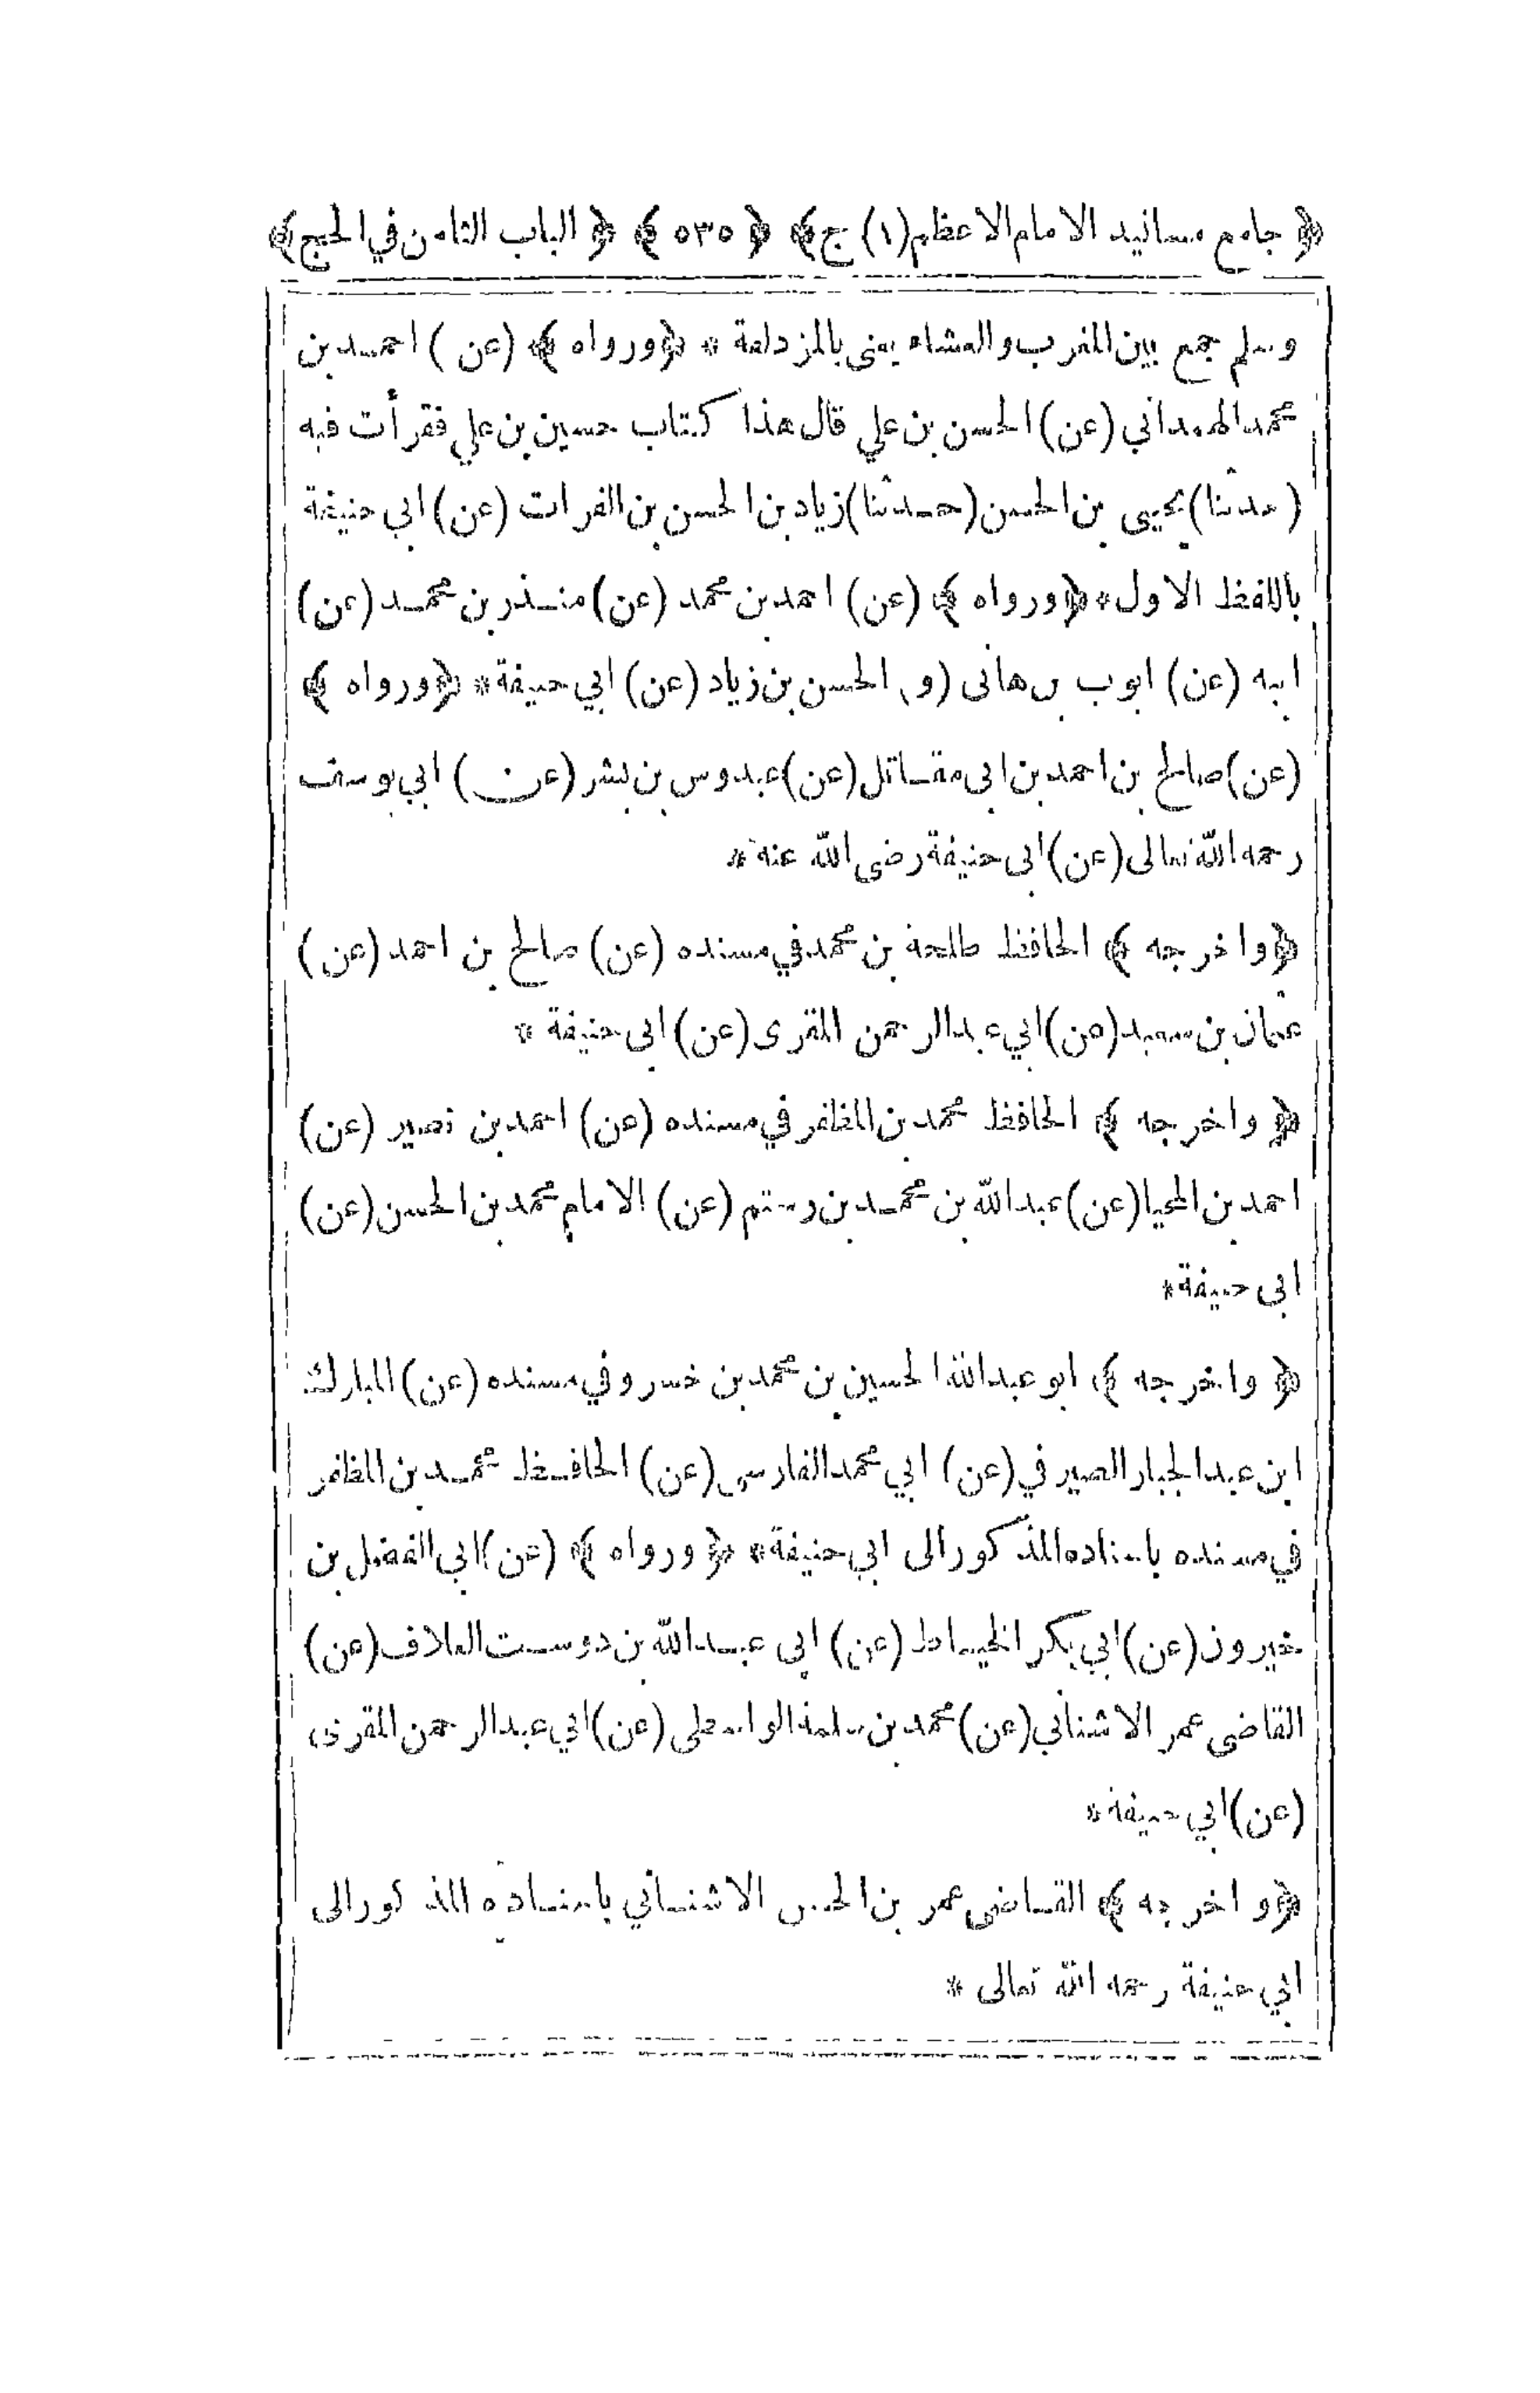 ﴿ جامع مسانيد الامام الاعظم (١) ج﴾ ﴿ ٥٣٥ ﴾ ﴿ الباب الثامن في الحج﴾
وسلم جمع بين المغرب والعشاء يعنى بالمزدلفة * ﴿ورواه ﴾ (عن ) احمد بن
محمد الهمداني (عن) الحسن بن علي قال هذا كتاب حسين بن علي فقرأت فيه
(حدثنا) يحيى بن الحسن (حدثنا) زياد بن الحسن بن الفرات (عن) ابي حنيفة
باللفظ الاول * ﴿ورواه ﴾ (عن) احمد بن محمد (عن) منذر بن محمد (عن)
ابيه (عن) ايوب بن هانى (و) الحسن بن زياد (عن) ابي حنيفة * ﴿ورواه ﴾
(عن) صالح بن احمد بن ابى مقاتل (عن) عبدوس بن بشر (عن) ابي يوسف
رحمه الله تعالى (عن) ابى حنيفة رضى الله عنه *
﴿واخرجه ﴾ الحافظ طلحة بن محمد في مسنده (عن) صالح بن احمد (عن)
عثمان بن سعيد (عن) ابي عبد الرحمن المقرى (عن) ابى حنيفة *
﴿ واخرجه ﴾ الحافظ محمد بن المظفر في مسنده (عن) احمد بن نصير (عن)
احمد بن المحيا (عن) عبد الله بن محمد بن رستم (عن) الامام محمد بن الحسن (عن)
ابى حنيفة *
﴿ واخرجه ﴾ ابو عبد الله الحسين بن محمد بن خسرو في مسنده (عن) المبارك
ابن عبد الجبار الصيرفي (عن) ابي محمد الفارسى (عن) الحافظ محمد بن المظفر
في مسنده باسناده المذكور الى ابي حنيفة * ﴿ ورواه ﴾ (عن) ابي الفضل بن
خيرون (عن) ابي بكر الخياط (عن) ابى عبد الله بن دوست العلاف (عن)
القاضى عمر الاشناني (عن) محمد بن سلمة الواسطى (عن) ابي عبد الرحمن المقرى
(عن) ابي حنيفة *
﴿واخرجه ﴾ القاضى عمر بن الحسن الاشناني باسناده المذكور الى
ابي حنيفة رحمه الله تعالى *